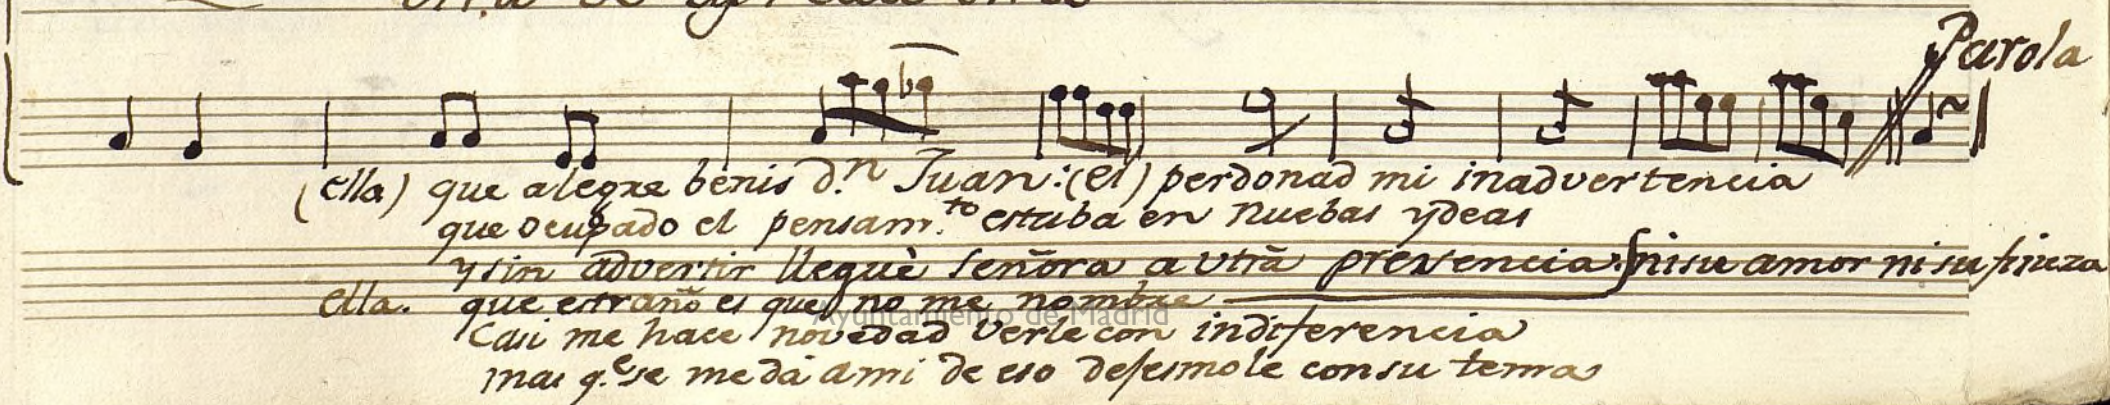 Parola
(ella) que alegre benis d.n Juan: (el) perdonad mi inadverte­ncia
que ocupado el pensam.to estaba en nuebas ydeas
y sin advertir lleguè señora a vtrã presencia. ni su amor ni su fineza
ella. que estraño es que no me nombre
Casi me hace novedad verle con indiferencia
mas q.e se me dà a mi de eso dejesmole con su tema
Ayuntamiento de Madrid